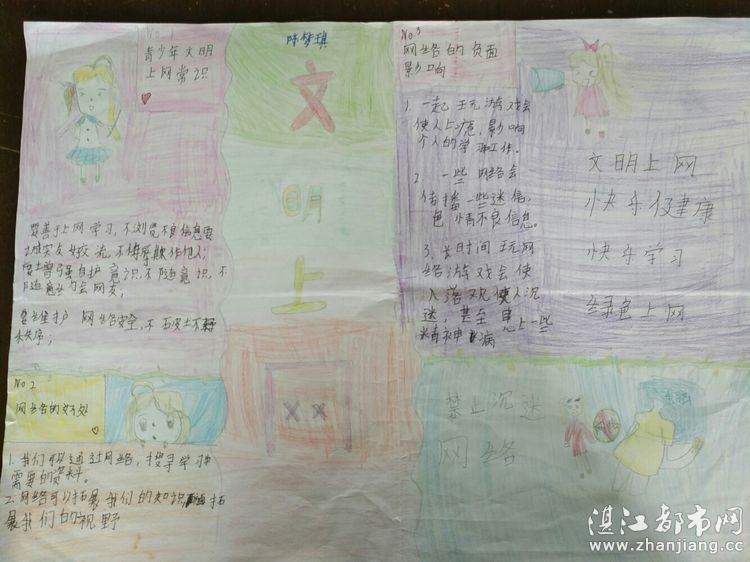 No.1
青少年文明
上网常识
要善于上网学习，不浏览不良信息要
诚实友好交流，不侮辱欺诈他人；
要增强自护意识，不随意识，不
随意约会网友；
要维护网络安全，不破坏
秩序；
No.2
网络的好处
1、我们可以通过网络，搜寻学习中
需要的资料。
2、网络可以拓展我们的知识，拓
展我们的视野
陈梦琪
文
明
上
网
No.3
网络的负面
影响
1、一起玩游戏会
使人上瘾，影响
个人的学和工作。
2、一些网络会
传播一些迷信，
色情不良信息。
3、长时间玩网
络游戏会使
人落观使人沉
迷，甚至患上一些
精神病
文明上网
快乐健康
快乐学习
绿色上网
禁止沉迷
网络
湛江都市网
www.zhanjiang.cc